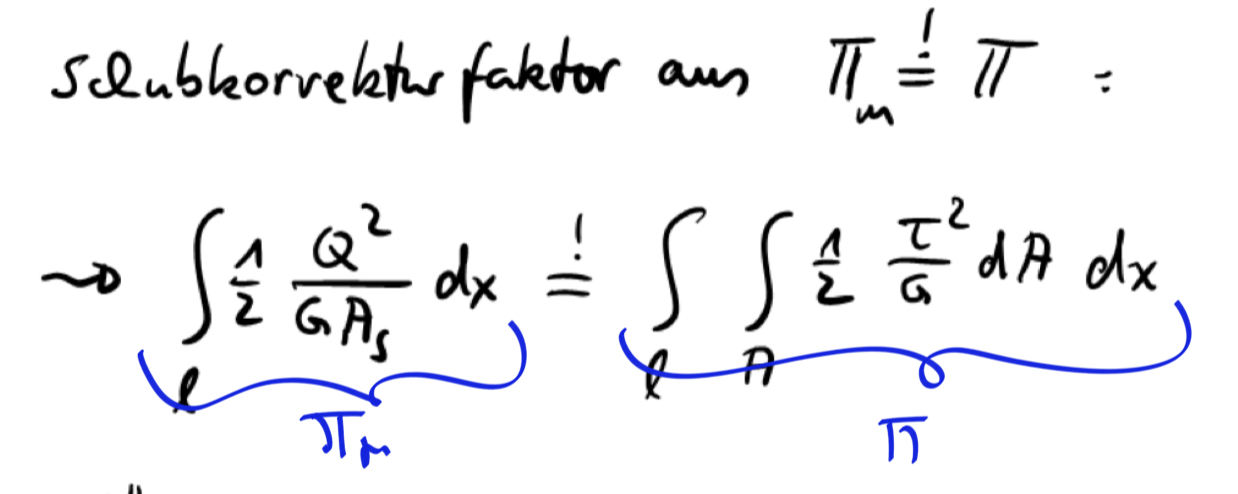 Schubkorrekturfaktor aus Π_m =! Π :
⇝ ∫_l 1/2 Q²/(G A_s) dx =! ∫_l ∫_A 1/2 τ²/G dA dx
Π_m Π